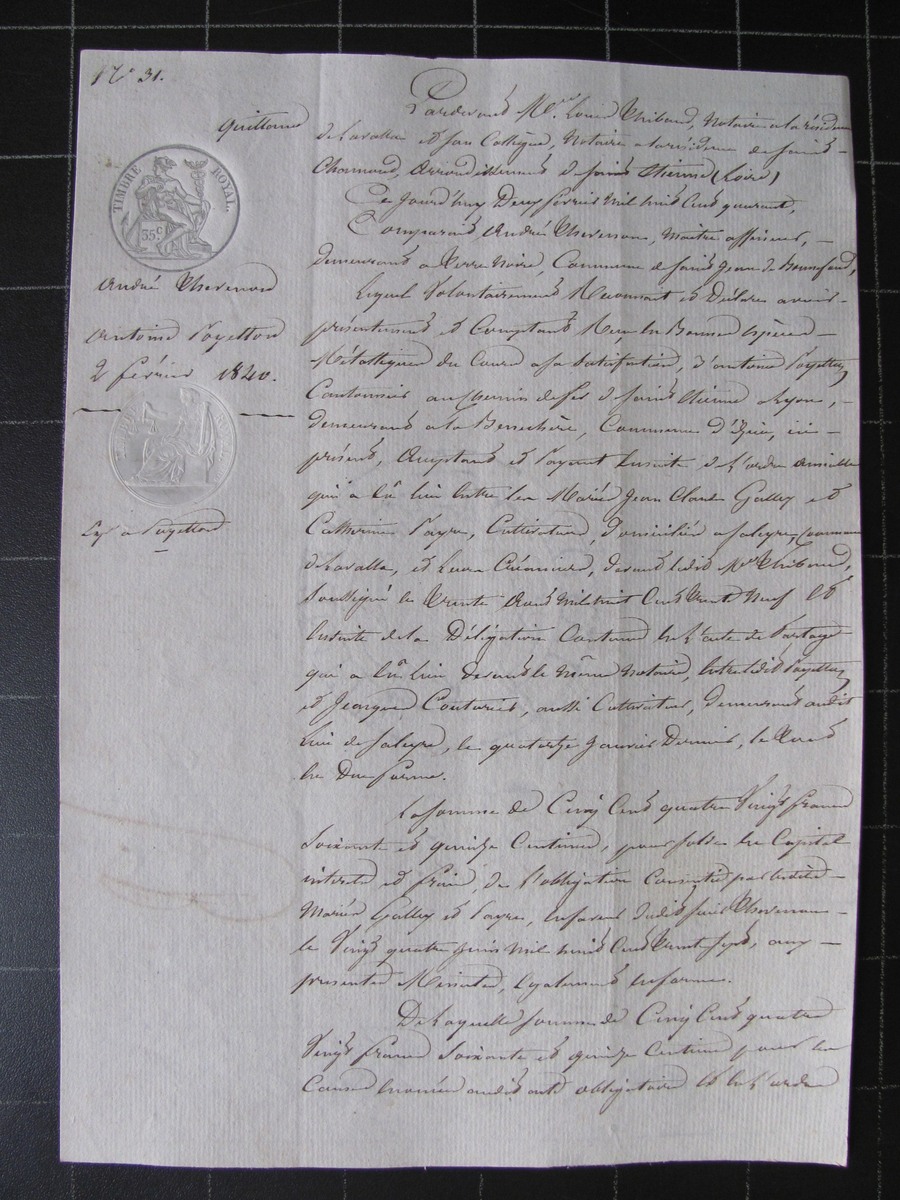 N° 31.
Quittance
TIMBRE ROYAL.
35 c
André Thevenon
Antoine Payetton
2 février 1840.
Exp. a Payetton
Pardevant Me. Louis Thibaud, Notaire a la résidence
de Lavalla et son Collègue, Notaire a la résidence de Saint-
Chamond, arrondissement de Saint Etienne (Loire)
Ce Jourd'huy Deux février mil huit Cent quarante,
Comparait André Thevenon, Maitre affineur,
demeurant a Terre Noire, Commune de Saint Jean de Bonnefond,
Lequel Volontairement Reconnait et Déclare avoir
présentement et Comptant Reçu, en Bonnes espèces
Métalliques du Cours a sa Satisfaction, d'antoine Payetton
Cantonnier au Chemin de fer de Saint Etienne a Lyon,
demeurant a la Berechère, Commune d'Izieu, ici
présent, acceptant et Payant Ensuite de l'ordre amiable
qui a Eu lieu Entre les Mariés Jean Claude Galley et
Catherine Payre, Cultivateurs, Domiciliés a Saleyre, Commune
de Lavalla, et Leurs Créanciers, devant ledit Me Thibaud,
Soussigné le Trente Aout mil huit Cent Trente Neuf et
Ensuite de la Délégation Contenue En l'acte de Partage
qui a Eu lieu devant le même Notaire, Entre ledit Payetton
et Jacques Couturier, aussi Cultivateur, demeurant audit
Lieu de Saleyre, le quatorze Janvier Dernier, le tout
En Due forme.
La somme de Cinq Cent quatre Vingt francs
Soixante et quinze Centimes, pour Solde En Capital
intérêts et frais, de l'obligation Consentie par lesdits
Mariés Galley et Payre, En faveur dudit Sieur Thevenon
le Vingt quatre Juin mil huit Cent Trente Sept, aux
présentes Minutes, Egalement En forme.
De Laquelle Somme de Cinq Cent quatre
Vingt francs Soixante et quinze Centimes pour les
Causes Enoncées audit acte obligatoire Et En l'ordre